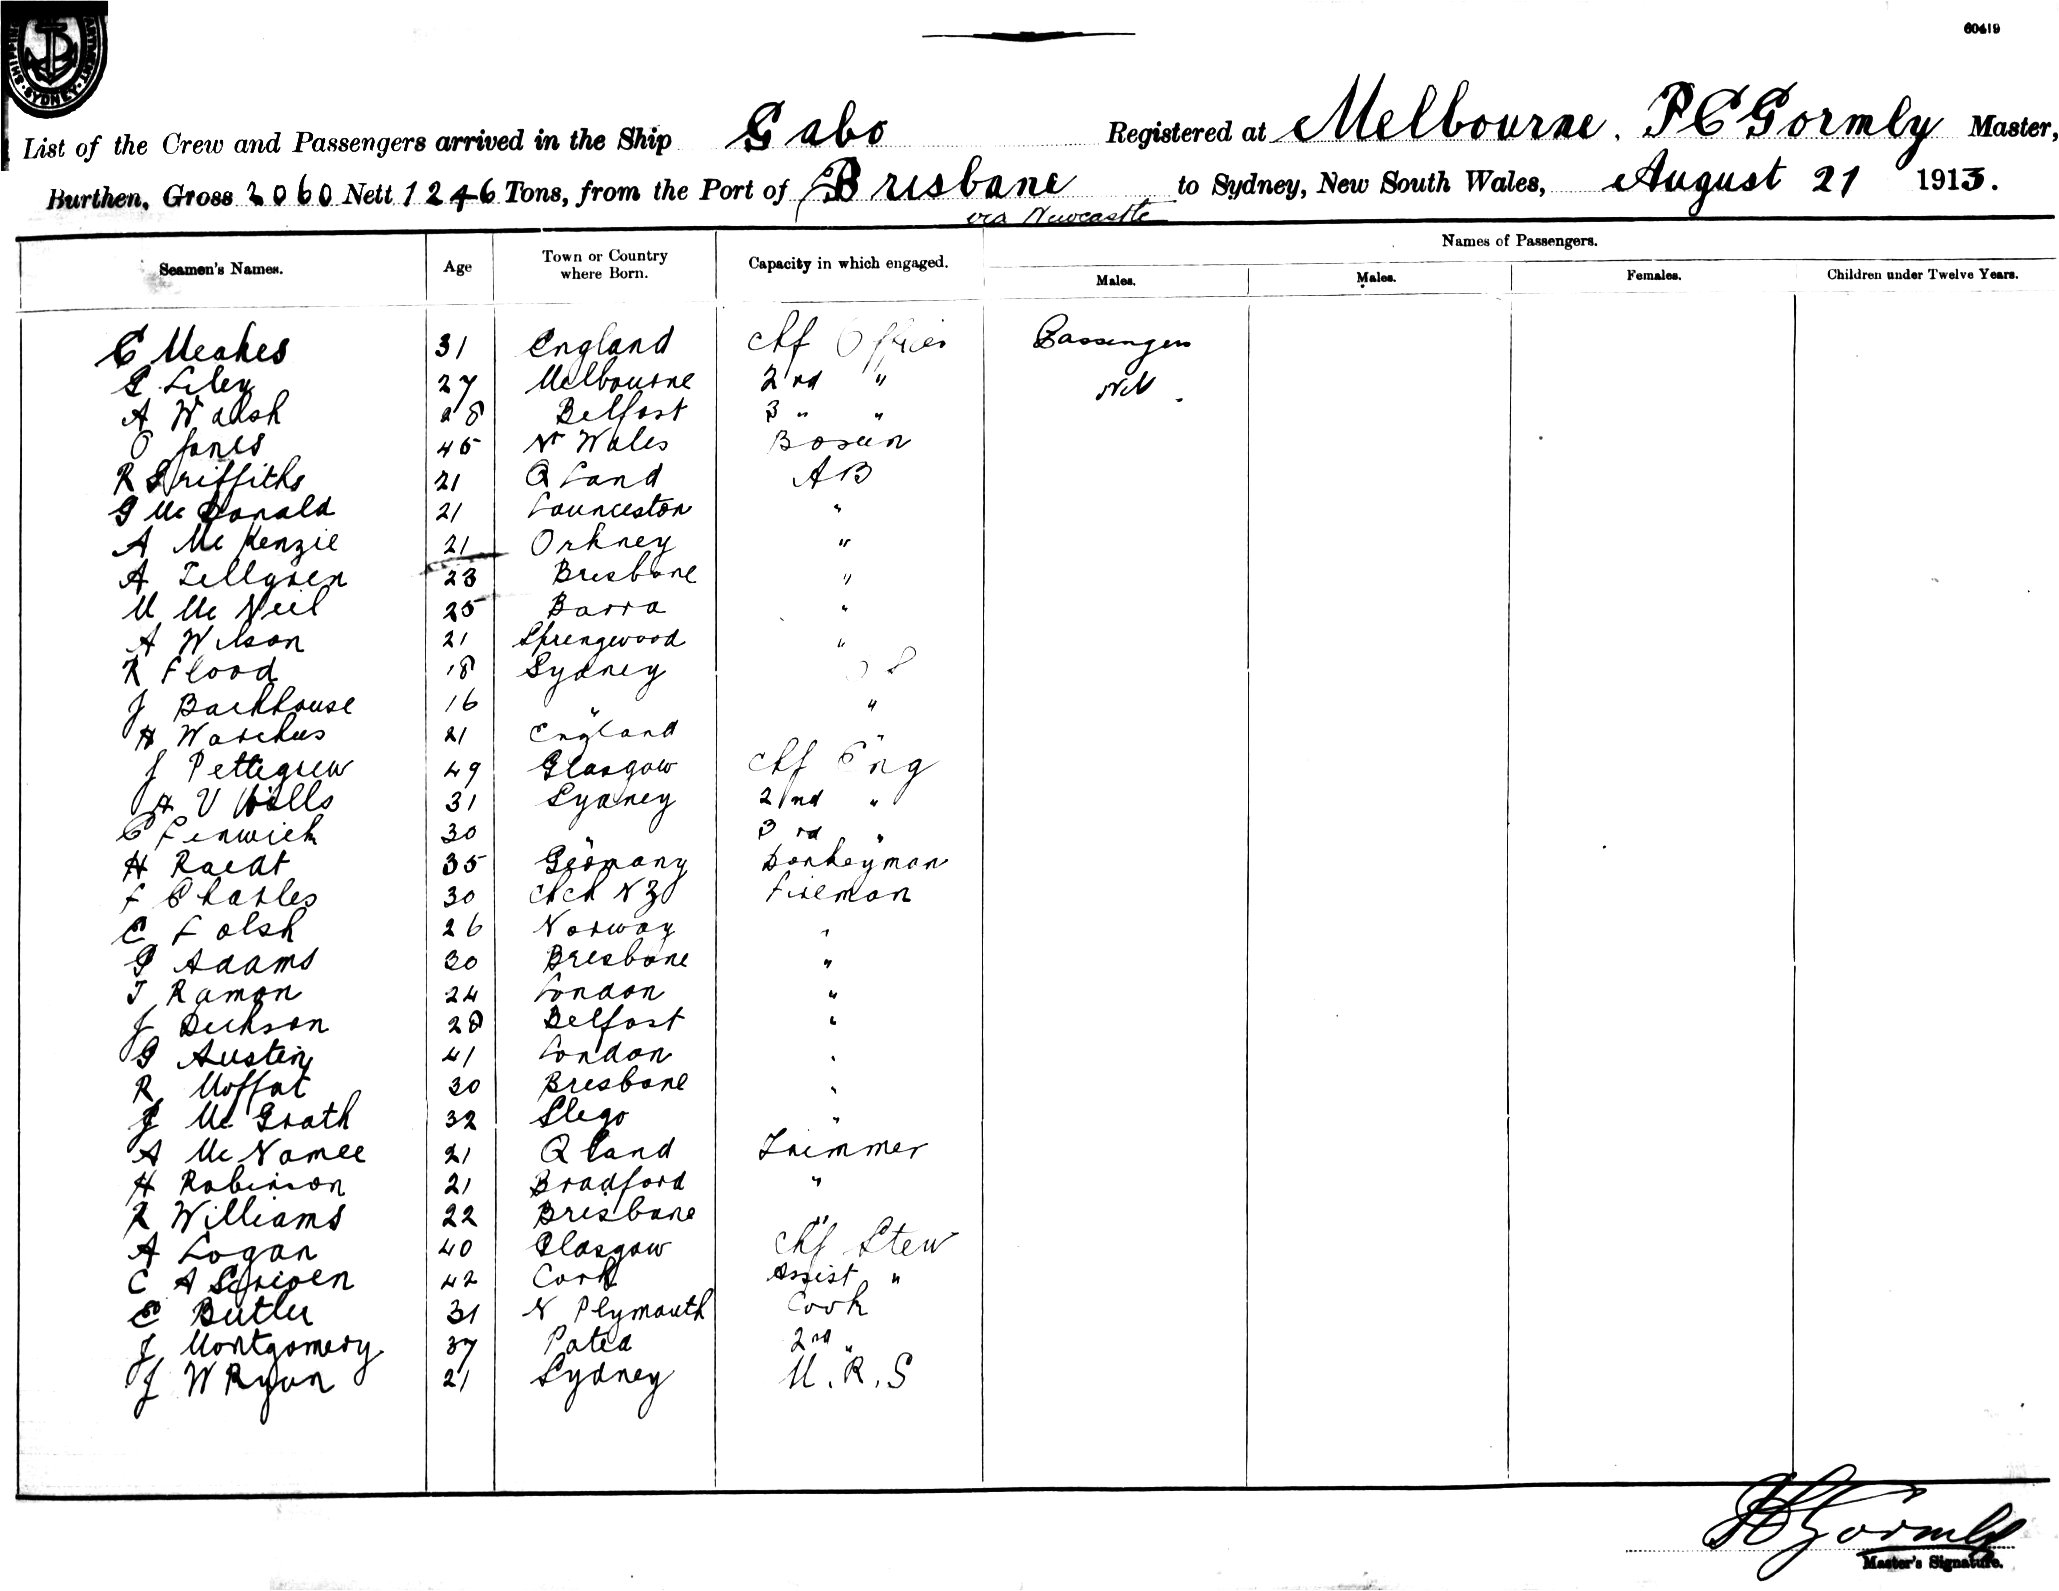 60419
SHIPPING DEPARTMENT SYDNEY
List of the Crew and Passengers arrived in the Ship Gabo Registered at Melbourne. P C Gormly Master,
Burthen, Gross 2060 Nett 1246 Tons, from the Port of Brisbane to Sydney, New South Wales, August 21 1913.
via Newcastle
Names of Passengers.
Seamen's Names. Age Town or Country where Born. Capacity in which engaged. Males. Males. Females. Children under Twelve Years.
C Meakes 31 England Chf Officer Passengers
G Liley 27 Melbourne 2nd " Nil.
A Walsh 28 Belfast 3 " "
O Jones 45 Nr Wales Bosun
R Griffiths 21 Q Land AB
G McDonald 21 Launceston "
A McKenzie 21 Orkney "
A Tellgren 23 Brisbane "
M McNeil 25 Barra "
A Wilson 21 Springwood "
R Flood 18 Sydney O S
J Backhouse 16 " "
H Warchus 21 England "
J Pettigrew 49 Glasgow Chf Eng
A V Wills 31 Sydney 2nd "
C Fenwick 30 " 3rd "
H Raedt 35 Germany Donkeyman
F Charles 30 ChCh NZ Fireman
C Folsh 26 Norway "
G Adams 30 Brisbane "
T Ramon 24 London "
J Dickson 28 Belfast "
G Austin 41 London "
R Moffat 30 Brisbane "
J McGrath 32 Sligo "
A McNamee 21 Q Land Trimmer
H Robinson 21 Bradford "
R Williams 22 Brisbane "
A Logan 40 Glasgow Chf Stew
C A Scriven 42 Cork Assist "
E Butler 31 N Plymouth Cook
J Montgomery 37 Patea 2nd "
J W Ryan 21 Sydney M.R.S
P C Gormly
Master's Signature.